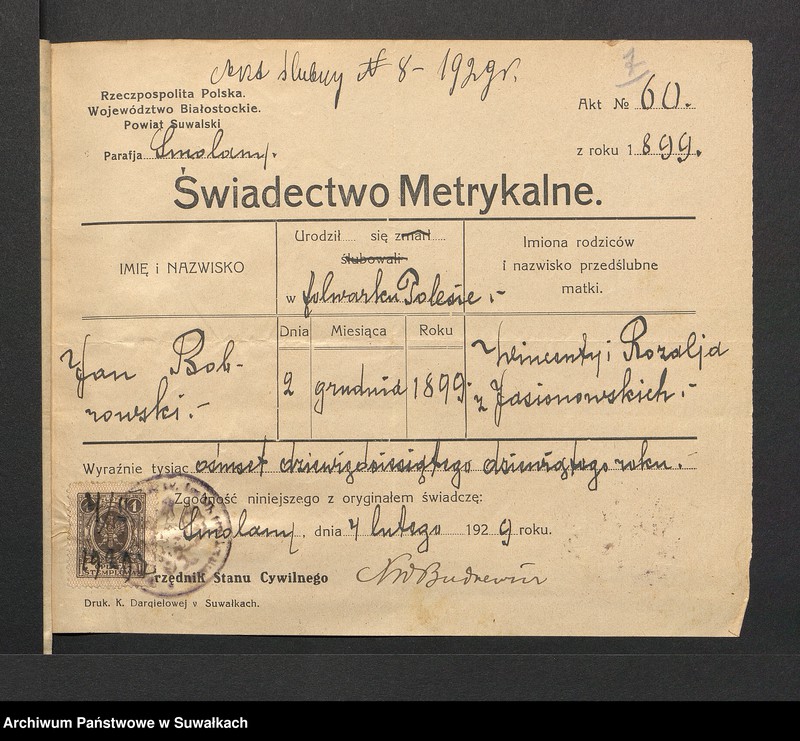 Akt ślubny № 8 - 1929 r.
7
Rzeczpospolita Polska.
Województwo Białostockie.
Powiat Suwalski
Parafja Smolany.
Akt № 60.
z roku 1.899.
Świadectwo Metrykalne.
IMIĘ i NAZWISKO
Urodził..... się zmarł.....
ślubowali
w folwarku Polesie.-
Imiona rodziców
i nazwisko przedślubne
matki.
Dnia Miesiąca Roku
Jan Bob-
rowski.-
2 grudnia 1899.
Wincenty i Rozalja
z Jasionowskich.-
Wyraźnie tysiąc ośmset dziewięćdziesiątego dziewiątego roku.-
Zgodność niniejszego z oryginałem świadczę:
Smolany, dnia 4 lutego 1929 roku.
rzędnik Stanu Cywilnego
Druk. K. Dargielowej w Suwałkach.
Archiwum Państwowe w Suwałkach